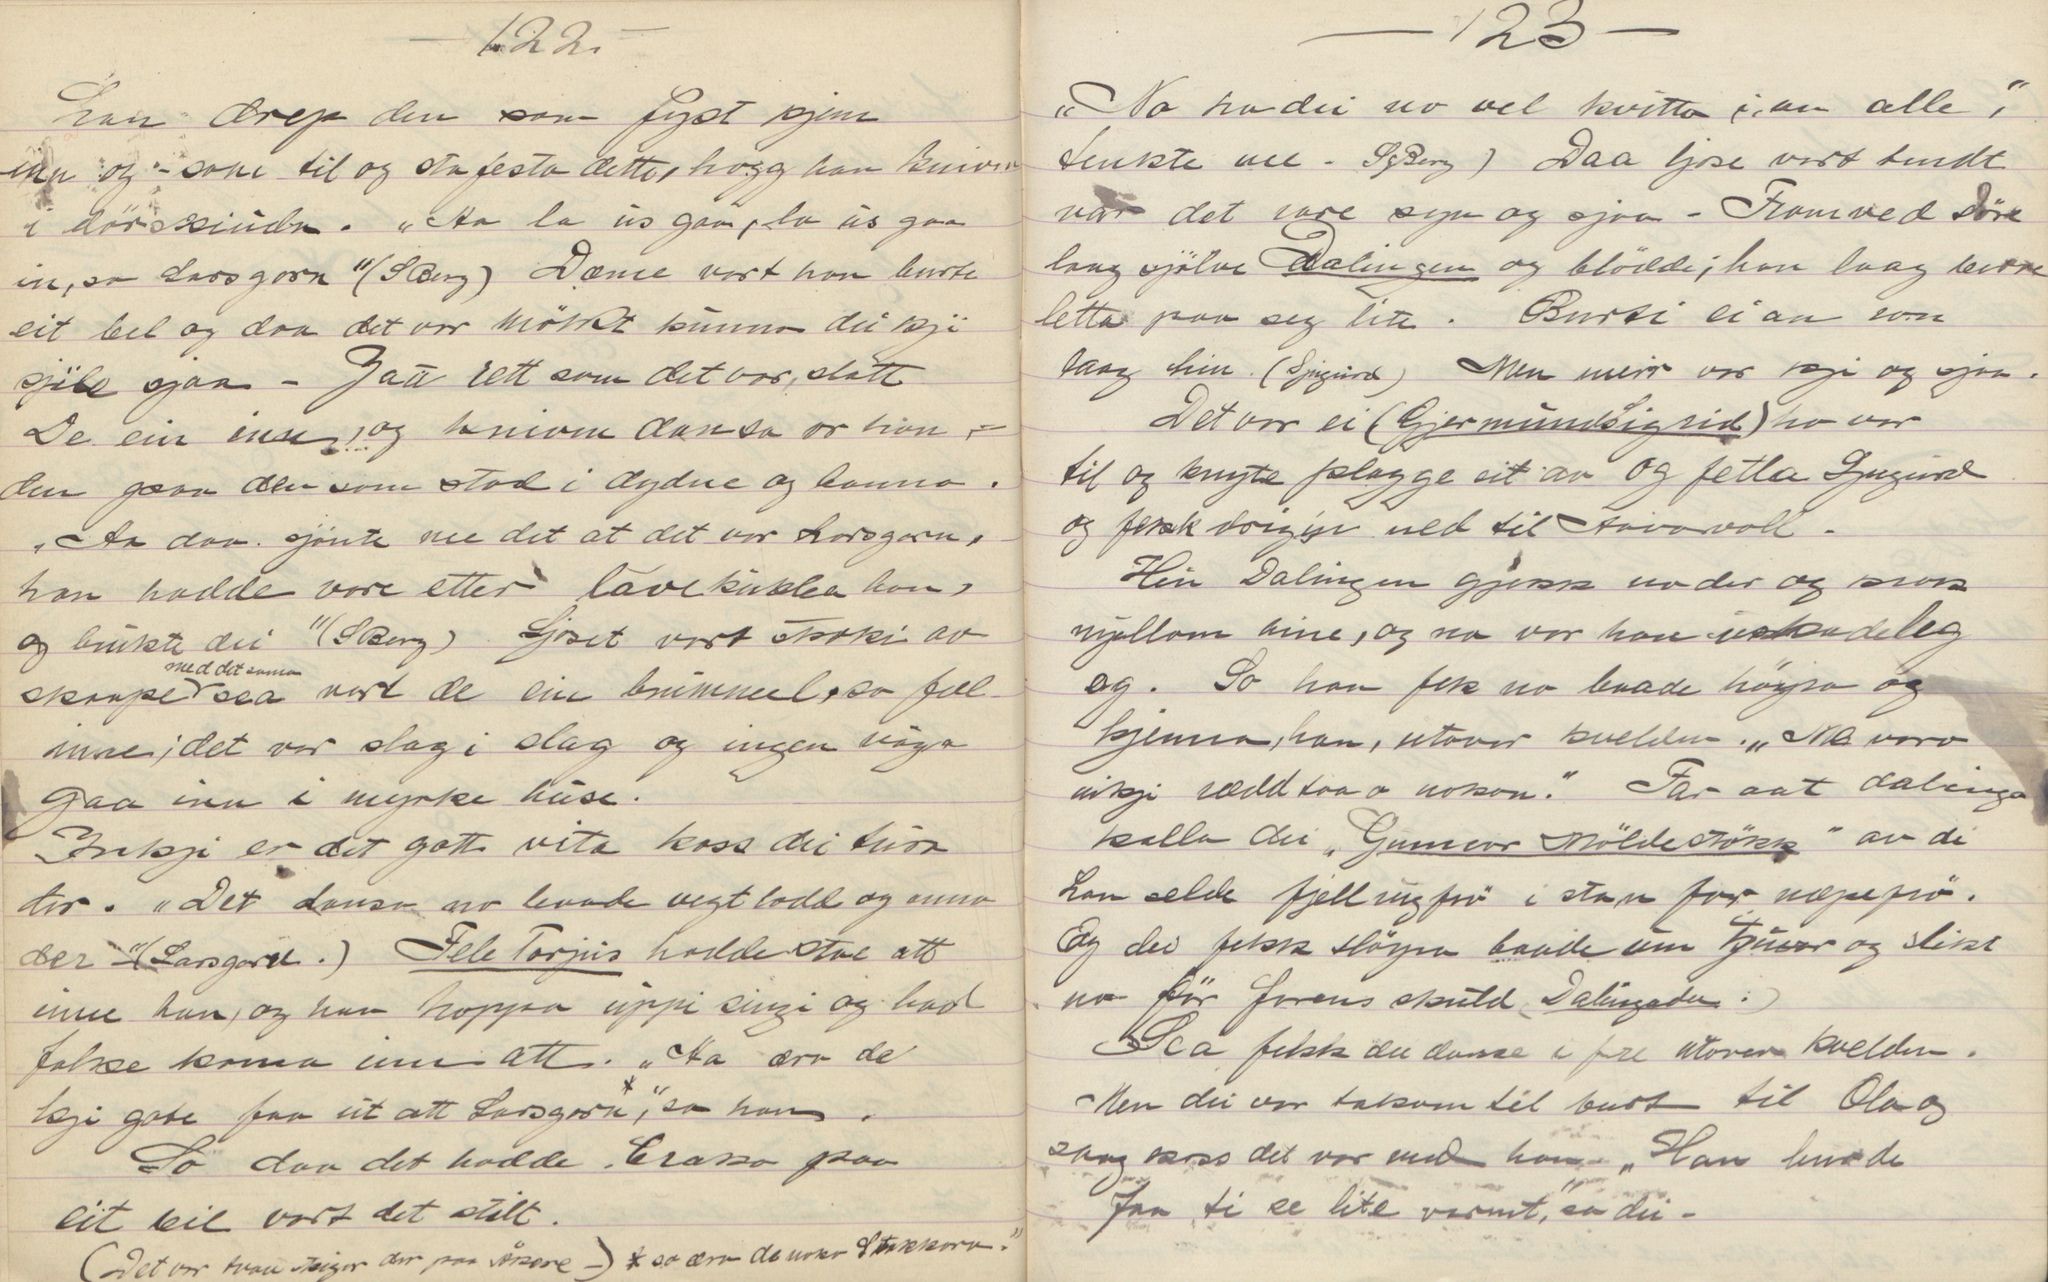 — 122. —
han drep den som fyst kjem
inn og som til og stafesta dette, hogg han kniven
i dörskiudn. „Aa la us gaa, la us gaa
in, sa Larsgarn" (S Berg) Dæme vart han burte
eit bel og daa det var mökt kunna dei kji
sjöle sjaa – Jaa rett som det var, slatt
De ein inn, og kniven dansa or han,
den paa den som stod i dydne og banna.
„Aa daa sjönte me det at det var Larsgarn,
han hadde vore etter lavekukla han,
og brukte dei" (S Berg) Ljoset vart skoki av
med det sama
skaape saa vart de ein brummel, so fael
inne; det var slag i slag og ingen vaaga
gaa inn i myrke huse.
Inkji er det gott vita koss dei tura
der. „Det dansa no baade vegtlodd og anna
der" (Larsgarn.) Fele Torjus hadde stae att
inne han, og han hoppa uppi singi og bad
folke koma inn att. „Aa æra de
kji gode faa ut att Larsgarn*," sa han.
So daa det hadde braka paa
eit bil vart det stilt.
(Det var tvau stigor der paa Åkere –) * sa æra de noko Stakkara."
— 123 —
„No ha dei no vel kvitta i an alle",
tenkte me – S Berg) Daa ljose vart tendt
var det vare syn og sjaa – Framved döre
laag sjölve Dalingen og blödde; han laag berre
letta paa seg lite. Burti ei an
laag hin. (Sjugurd) Men meir var kji og sjaa.
Det var ei (Gjermund Sigrid) ho var
til og knyte plagge sit av og fetla Sjugurd
og fekk drigjy ned til Aavarvoll –
Hin Dalingen gjekk no der og krok
mjellom hine, og no var han uskadeleg
og. So han fek no baade höyra og
kjenna, han, utover kvelden. „Me vara
inkji rædd taa a nokon." Far aat dalinga
kalla dei „Gunnar Möldestökk" av di
han selde fjellrugfrö i stan for næpefrö.
Og dei fekk höyra baade um tjuvar og slikt
no för farens skuld, Dalingadn.
Saa fekk dei danse i fre utover kvelden.
Men dei var takom til burt til Ola og
saag koss det var med han. „Han burde
faa ti se lite varmt," sa dei –